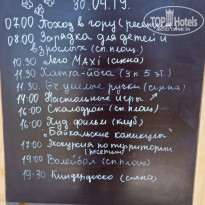 30.04.19.
TopHotels
07:00 Поход в гору (ресепшн)
08.00 Зарядка для детей и
взрослых (сп. площ.)
10.30 Лего MAXI (сцена)
11.30 Хатха-йога (3 к. 5 эт.)
11.30 Вкусные ручки (сцена)
14.00 Настольные игры
16:00 Скалодром (сп. площ)
16:00 Худ. фильм (клуб)
"Байкальские каникулы"
17:00 Экскурсия по территории
19:00 Волейбол (сп. площ)
19:30 Киндердиско (сцена)